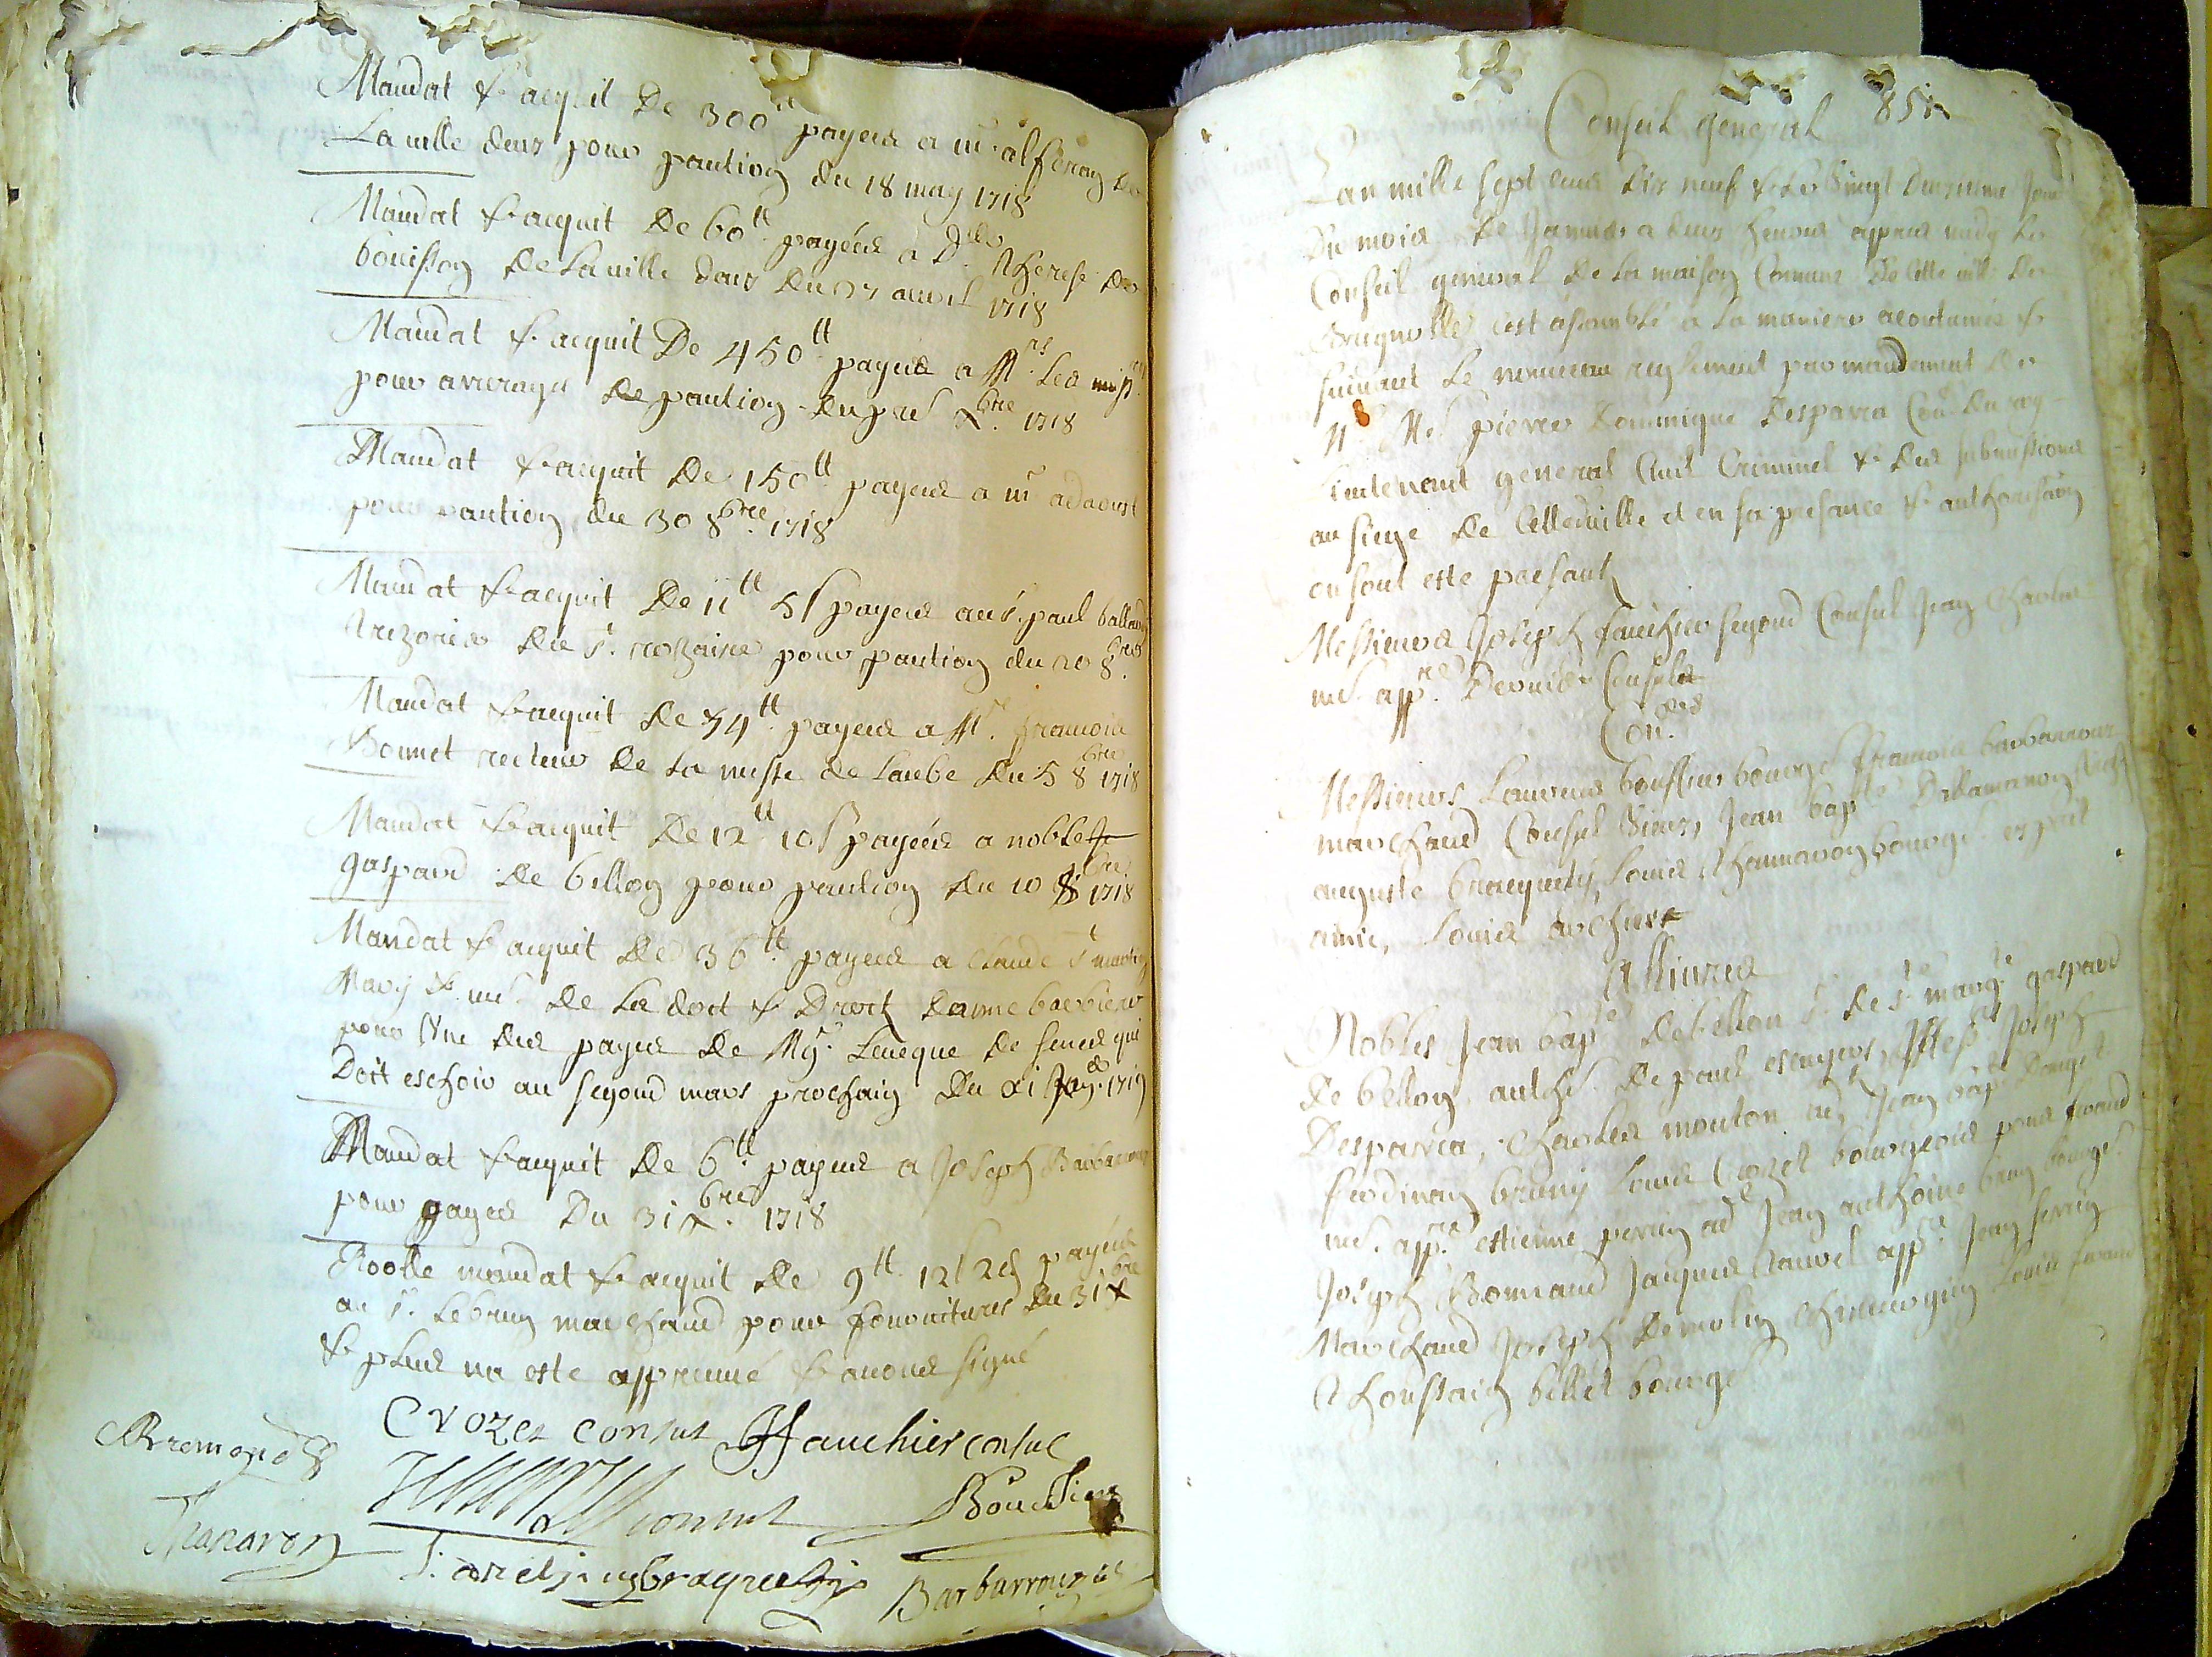 Mandat & acquit De 300tt payées a mr alferan de
La ville daix pour pantion du 18 may 1718
Mandat & acquit De 60tt payéés a Dlle Therese de
bouisson De la ville daix du 27 avril 1718
Mandat & acquit De 450tt payées a Mrs Les
pour arrerages De pantion du xbre 1718
Mandat & acquit De 150tt payées a mr adaoust
pour pantion du 30 8bre 1718
Mandat & acquit De 11tt 5s payées au sr. paul
trezorier du st. rozaire pour pantion du 20 8bre
Mandat & acquit de 54tt payées a Mre francois
Bonnet recteur De la messe de Laube Du 5 8bre 1718
Mandat & acquit De 12tt 10s payéés a noble
gaspard De bellon pour pantion du 10 8bre 1718
Mandat & acquit De 36tt payées a claude st martin
Mary & me De la dot & Droit danne barbiere
pour Une des payes De Mgr. Leveque De senes qui
Doit eschoir au segond mars prochain Du 21 1719
Mandat & acquit De 6tt payées a Joseph Barbarroux
pour gages Du 31 xbre 1718
Roolle mandat & acquit De 9tt 12s 2d payées
au sr. Lebrun marchand pour fournitures du 31 xbre
& plus na este apprimé & avons signé
Crozet consul Fauchier consul
Bremond
consul
Thanaron
braquety Barbarroux
Conseil general 851
Lan mille sept cens dix neuf & le Vingt Jour
Du mois De Janvier a deux heures appres midy Le
Conseil general De la maison Commune De cette ville De
Brignolle sest assemblé a la maniere acoutumée &
suivant Le nouveau reglement par mandement De
Mr Me pierre Dominique Desparra Coner. Du roy
Lieutenant general Civil Criminel & des submissions
au siege De cette ville et en sa presance & authorisaon
en sont este presants
Messieurs Joseph fauchier segond Consul Jean Charles
me appre Dernier Consuls
Conrs
Messieurs Laurens bourges francois barbarroux
marchand Consul Vieux, Jean bapte
auguste braquety, Louis Thanaron bourges esprit
amic, Louis
Allivrés
Nobles Jean bapte De bellon sr. De ste margte gaspard
De bellon, De paul escuyers, Joseph
Desparra, Charles mouton ad, Jean bapte
ferdinan bruny Louis Crozet bourgeois
me. appre. estienne perrin ad Jean anthoine brun bourges
Joseph Jacques clavel appre Jean serrin
Marchand Joseph Demolin Chirurgien Louis
Thoussain billet bourges